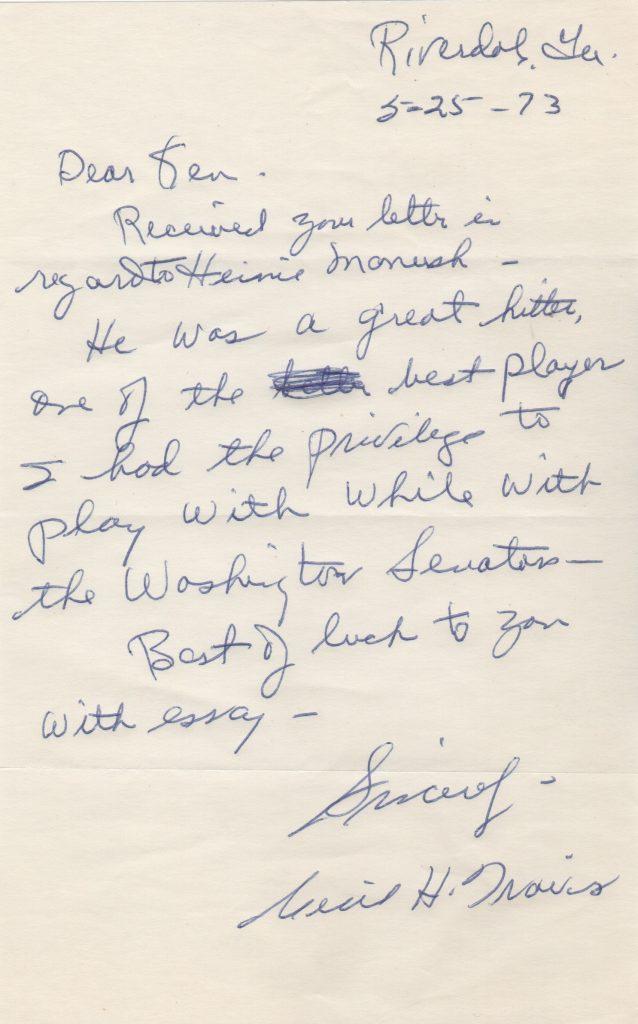 Riverdale, Ga.
5-25-73
Dear Ken.
Received your letter in
regard to Heinie Manush -
He was a great hitter,
one of the best player
I had the privilege to
play with while with
the Washington Senators -
Best of luck to you
with essay -
Sincerely -
Cecil H. Travis